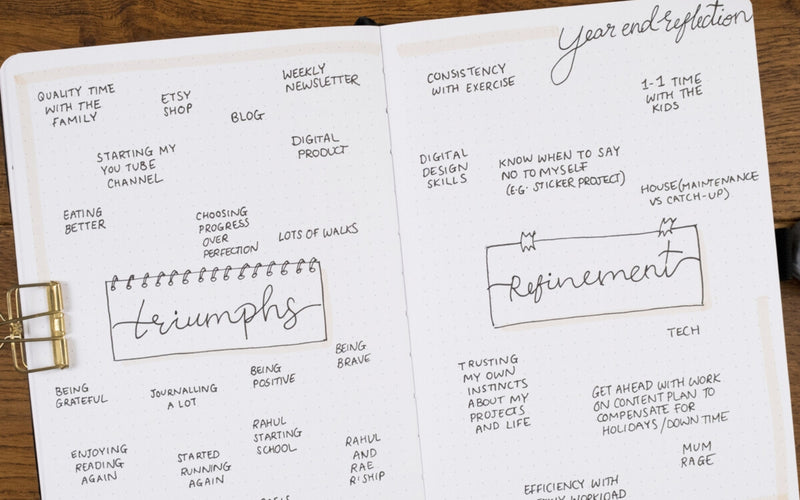 QUALITY TIME
WITH THE
FAMILY
ETSY
SHOP
BLOG
WEEKLY
NEWSLETTER
STARTING MY
YOU TUBE
CHANNEL
DIGITAL
PRODUCT
EATING
BETTER
CHOOSING
PROGRESS
OVER
PERFECTION
LOTS OF WALKS
triumphs
BEING
GRATEFUL
JOURNALLING
A LOT
BEING
POSITIVE
BEING
BRAVE
ENJOYING
READING
AGAIN
STARTED
RUNNING
AGAIN
RAHUL
STARTING
SCHOOL
RAHUL
AND
RAE
R'SHIP
Year end reflection
CONSISTENCY
WITH EXERCISE
1-1 TIME
WITH THE
KIDS
DIGITAL
DESIGN
SKILLS
KNOW WHEN TO SAY
NO TO MYSELF
(E.G. STICKER PROJECT)
HOUSE (MAINTENANCE
VS CATCH-UP)
Refinement
TECH
TRUSTING
MY OWN
INSTINCTS
ABOUT MY
PROJECTS
AND LIFE
GET AHEAD WITH WORK
ON CONTENT PLAN TO
COMPENSATE FOR
HOLIDAYS/DOWNTIME
MUM
RAGE
EFFICIENCY WITH
WORKLOAD